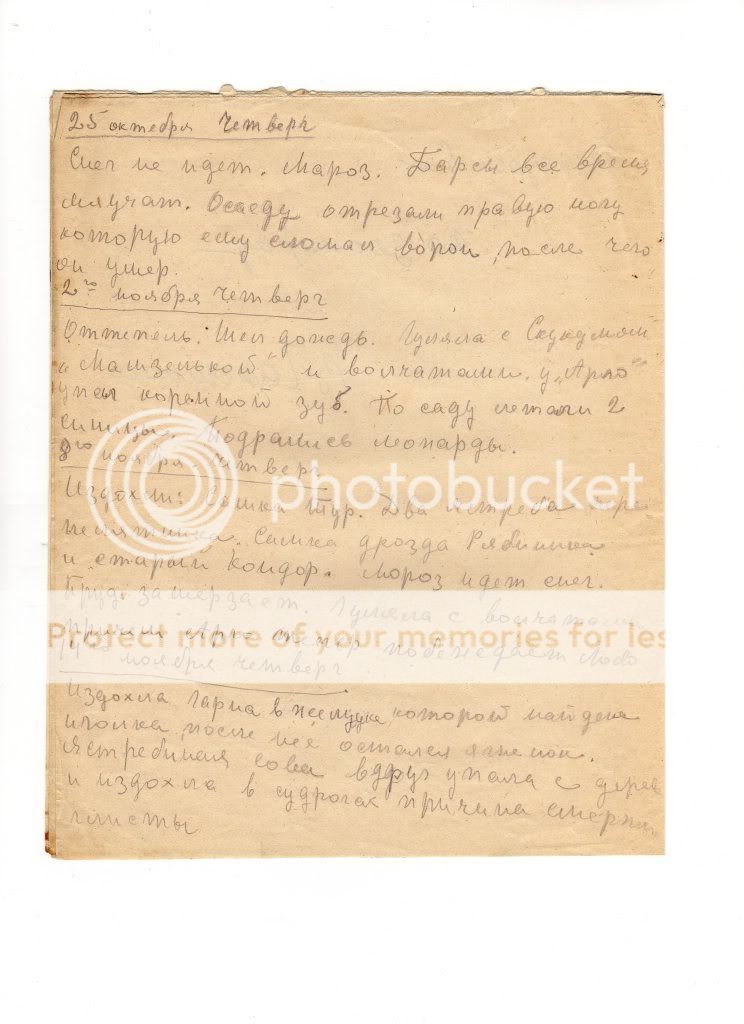 25 октября Четверг
Снег не идет. Мароз. Барсы все время
мяучат. Осаеду отрезали правую ногу
которую ему сломал ворон, после чего
он умер.
2го ноября четверг
Оттепель. Шел дождь. Гуляла с
и волчатами. у „Арго"
упал коренной зуб. По саду летали 2
синицы. Подрались леопарды.
8го ноября. четверг
photobucket
Издохли: Тур. Два ястреба пере
пелятника. Самка дрозда Рябинника
и старый Кондор. Мороз идет снег.
Пруд замерзает. Гуляла с волчатами
Protect more of your memories for les
причем Арго побеждает
ноября четверг
Издохла Гарна в желудке которой найдена
иголка, после неё остался ягненок.
Ястребиная сова вдруг упала с дерев
и издохла в судрогах причина смерти
глисты